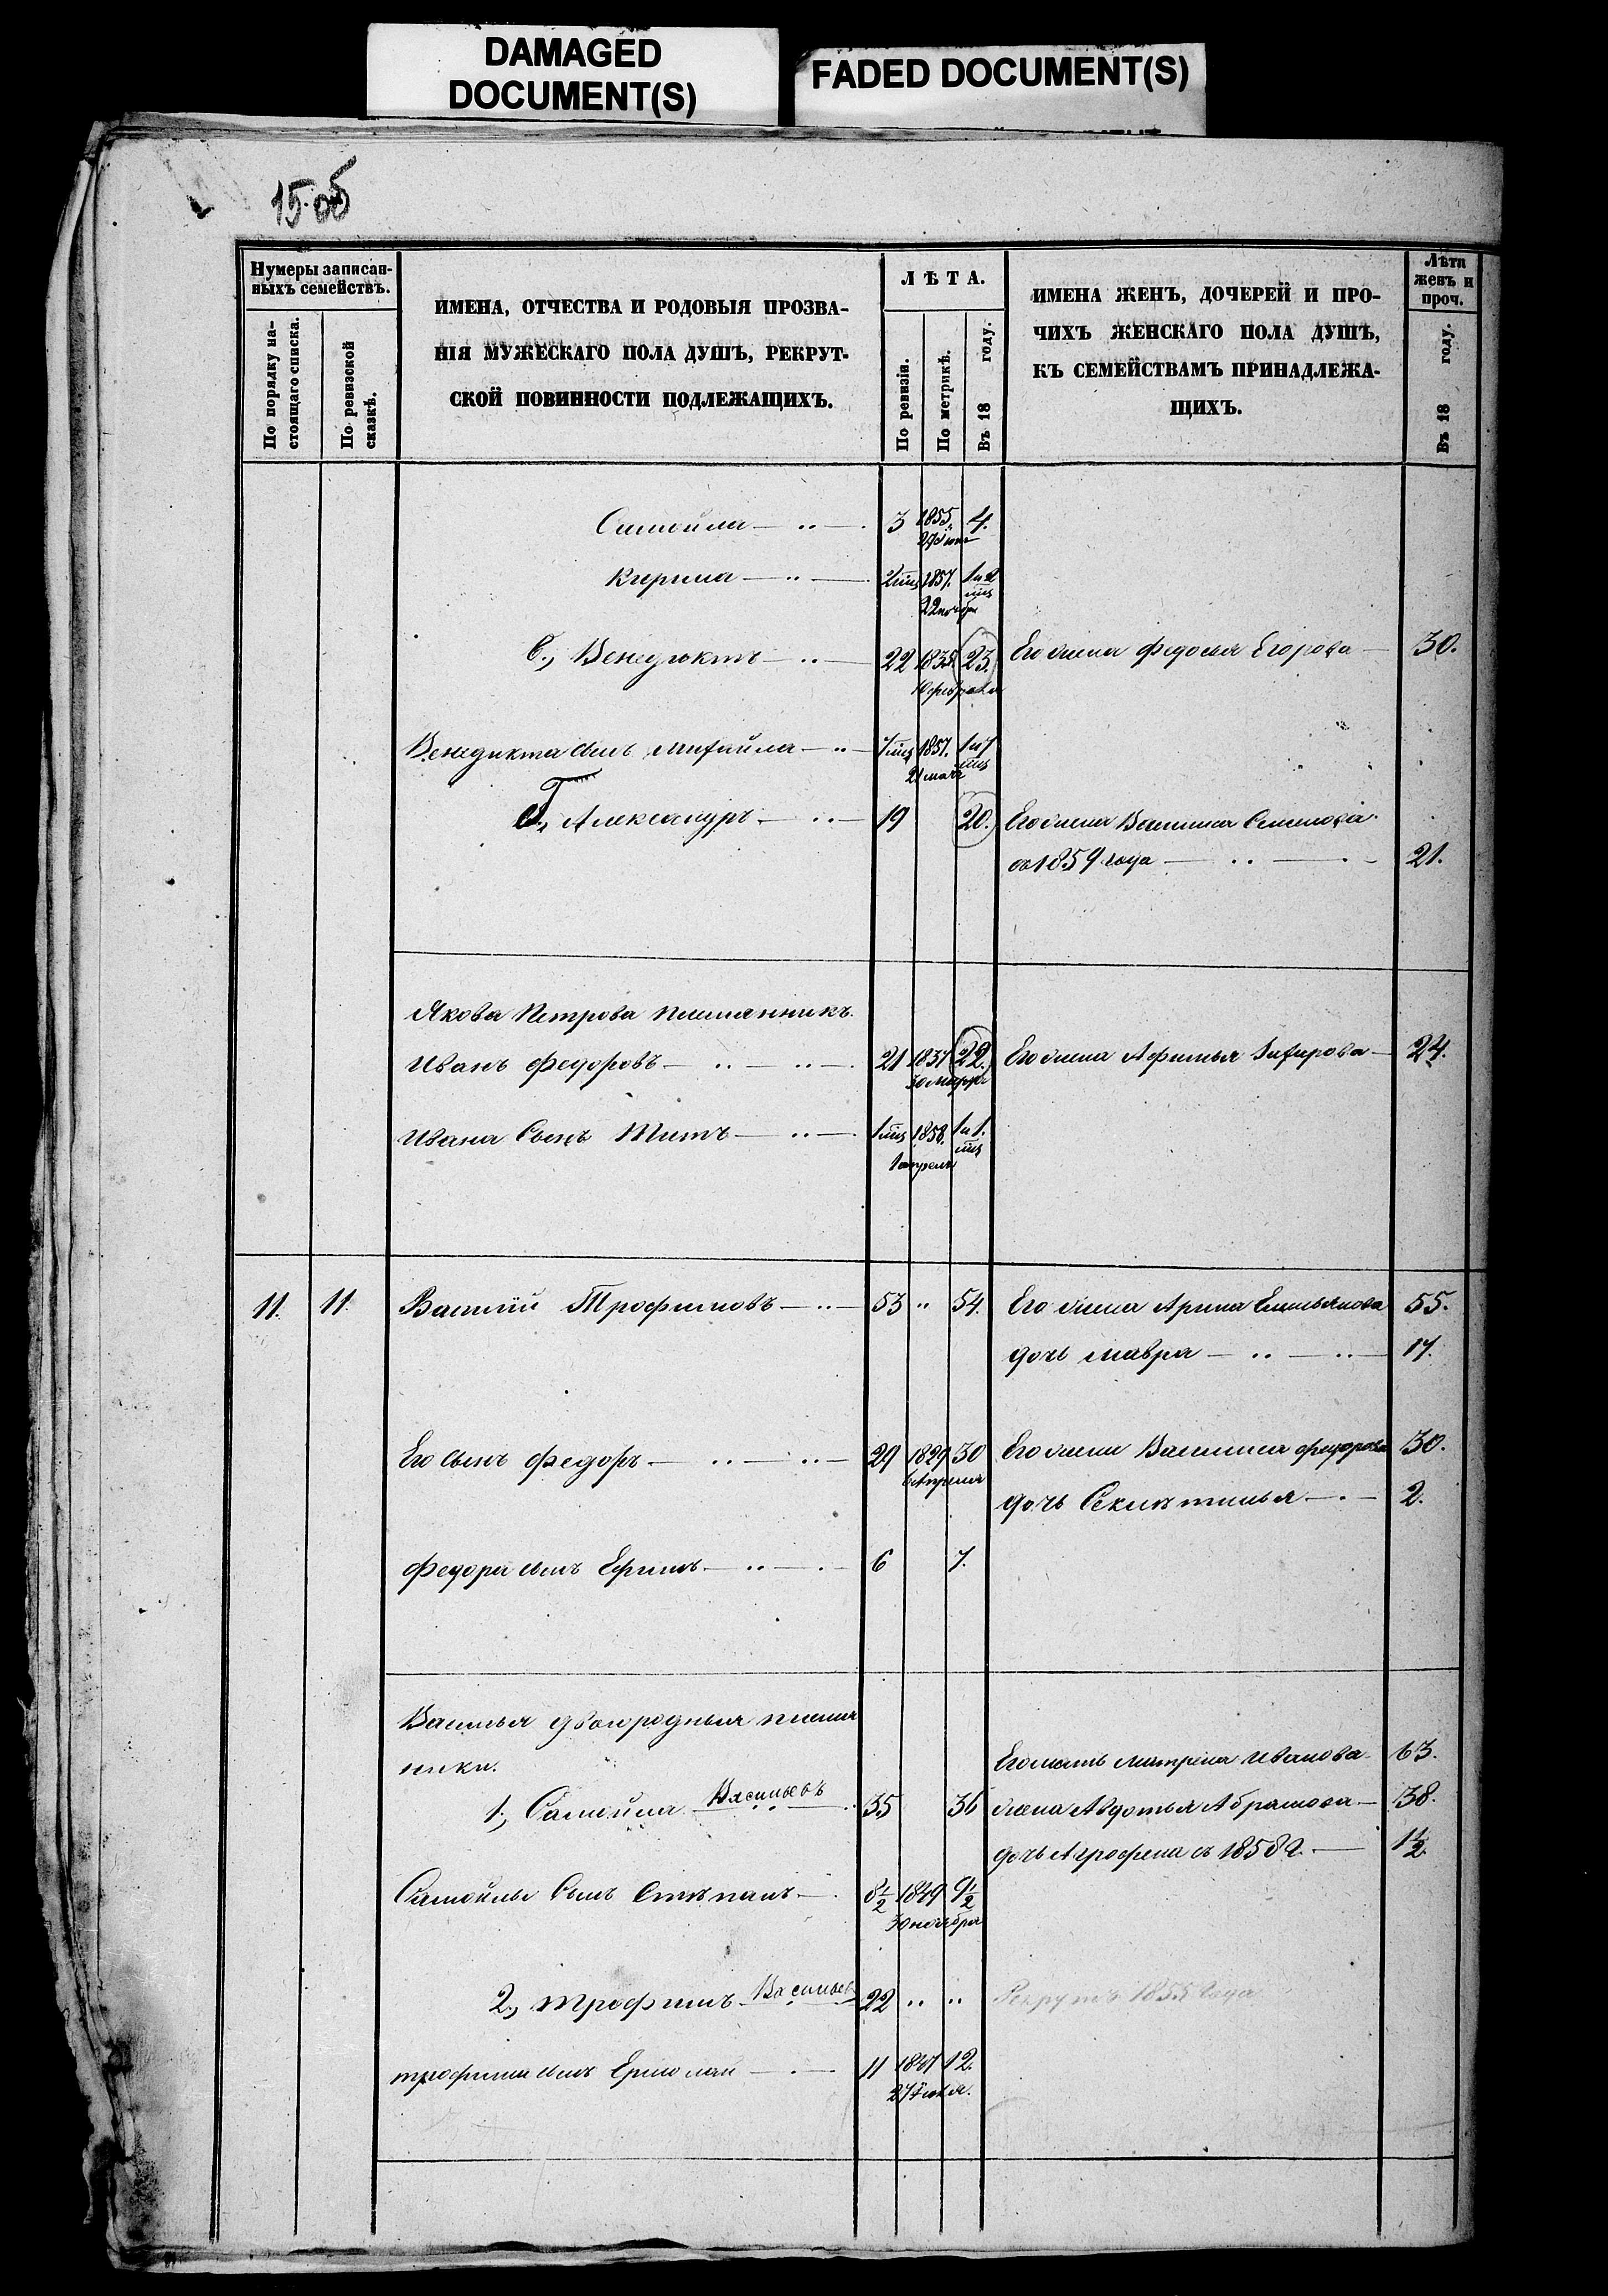 DAMAGED
DOCUMENT(S)
FADED DOCUMENT(S)
15 об
Нумеры записан-
ныхъ семействъ.
По порядку на-
стоящаго списка.
По ревизской
сказкѣ.
ИМЕНА, ОТЧЕСТВА И РОДОВЫЯ ПРОЗВА-
НІЯ МУЖЕСКАГО ПОЛА ДУШЪ, РЕКРУТ-
СКОЙ ПОВИННОСТИ ПОДЛЕЖАЩИХЪ.
ЛѢТА.
По ревизіи.
По метрикѣ.
Въ 18 году.
ИМЕНА ЖЕНЪ, ДОЧЕРЕЙ И ПРО-
ЧИХЪ ЖЕНСКАГО ПОЛА ДУШЪ,
КЪ СЕМЕЙСТВАМЪ ПРИНАДЛЕЖА-
ЩИХЪ.
Лѣта
женъ и
проч.
Въ 18 году.
Самойла — „ — 3 1855. 4.
Кирила — „ — 2 мц 1857. 1 и 2
мц
22 ноября
в., Венедиктъ — „ — 22 1835 23. Его жена Федосья Егорова — 30.
10 февраля
Венедикта сынъ Михайла — „ — 7 мц 1857. 1 и 7
21 мая мц
Г., Александръ — „ — 19 20. Его жена Василиса Семенова
съ 1859 года — „ — 21.
Якова Петрова племянникъ
Иванъ Федоровъ — „ — „ — 21 1837 22. Его жена Афимья — 24.
30 марта
Ивана Сынъ Титъ — „ — 1 мц 1858. 1 и 1.
1 апреля мц
11. 11. Василій Трофимовъ — „ — 53 „ 54. Его жена Арина Емельянова 55.
дочь Мавра — „ — „ — 17.
Его сынъ Федоръ — „ — „ — 29 1829 30 Его жена Василиса Федорова 30.
6 Апреля
дочь Секлѣтинья — „ — 2.
Федора сынъ Ефимъ — „ — 6 7.
Василья двоюродныя племян
ники.
Его мать Матрена Иванова 63.
1., Самойла Васильевъ 35 36 жена Авдотья Абрамова — 38.
дочь Агрофена съ 1858 г. — 1 1/2.
Самойлы Сынъ Степанъ — 8 1/2 1849 9 1/2
30 ноября
2., Трофимъ Васильев 22 „ „ Рекрутъ 1855 года
трофима сынъ Ермолай — 11 1847 12.
27 Іюля.